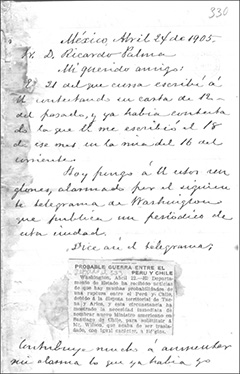 330
México, Abril 24 de 1905.
Sr. D. Ricardo Palma
Mi querido amigo:
El 21 del que cursa escribí á
U contestando su carta de
del pasado, y ya había contesta
do la que U me escribió el 18
de ese mes en la mía del 16 del
corriente.
Hoy pongo á U estos ren
glones, alarmado por el siguien
te telegrama de Washington
que publica un periódico de
esta ciudad.
Dice así el telegrama;
PROBABLE GUERRA ENTRE EL
PERU Y CHILE
Washington, Abril 22.—El Departa-
mento de Estado ha recibido noticias
de que hay muchas probabilidades de
una ruptura entre el Perú y Chile,
debido á la disputa territorial de Tacna
y Arica, y esta circunstancia ha
mostrado la necesidad inmediata de
nombrar nuevo Ministro americano en
Santiago de Chile, para substituir á
Mr. Wilson, que acaba de ser trasla-
dado, con igual carácter, á Bélgica.
Contribuye mucho á aumentar
mi alarma lo que ya había yo